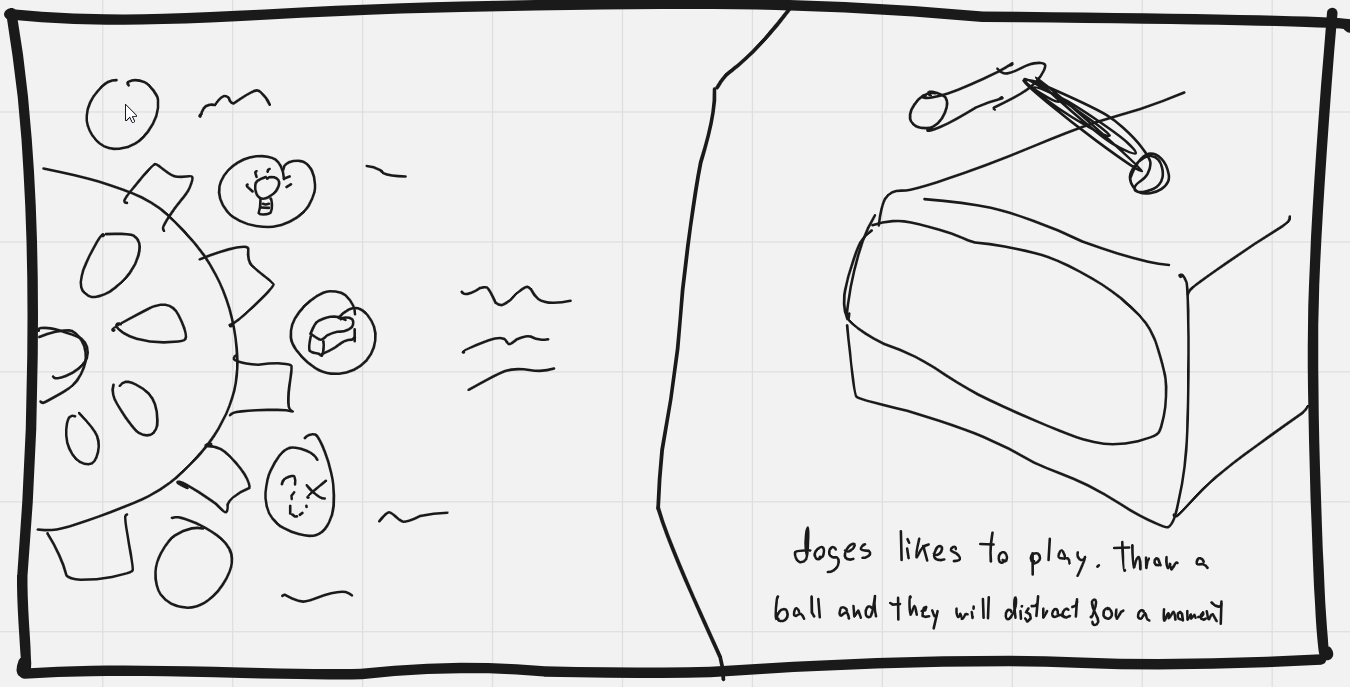 doges likes to play. Throw a
ball and they will distract for a moment